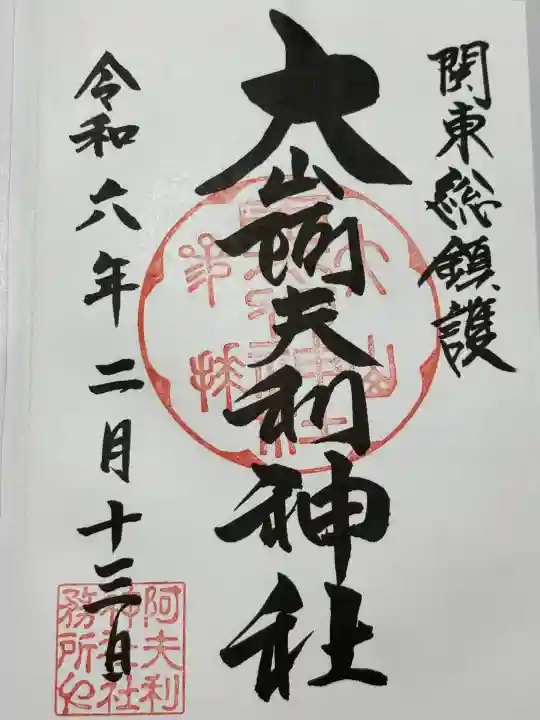 関東総鎮護
大山阿夫利神社
令和六年二月十三日
阿夫利
神社社
務所也